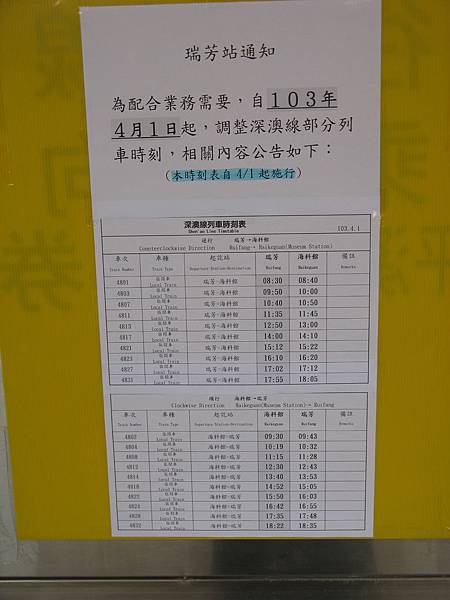 瑞芳站通知
為配合業務需要，自103年
4月1日起，調整深澳線部分列
車時刻，相關內容公告如下：
(本時刻表自4/1起施行)
深澳線列車時刻表 103.4.1
Shen'ao Line Timetable
逆行 瑞芳→海科館
Counterclockwise Direction Ruifang→ Haikeguan(Museum Station)
車次 車種 起訖站 瑞芳 海科館 備註
Train Number Train Type Departure Station-Destination Ruifang Haikeguan Remarks
4801 區間車 Local Train 瑞芳-海科館 08:30 08:40
4803 區間車 Local Train 瑞芳-海科館 09:50 10:00
4807 區間車 Local Train 瑞芳-海科館 10:40 10:50
4811 區間車 Local Train 瑞芳-海科館 11:35 11:45
4813 區間車 Local Train 瑞芳-海科館 12:50 13:00
4817 區間車 Local Train 瑞芳-海科館 14:00 14:10
4821 區間車 Local Train 瑞芳-海科館 15:12 15:22
4823 區間車 Local Train 瑞芳-海科館 16:10 16:20
4827 區間車 Local Train 瑞芳-海科館 17:02 17:12
4831 區間車 Local Train 瑞芳-海科館 17:55 18:05
順行 海科館→瑞芳
Clockwise Direction Haikeguan(Museum Station)→ Ruifang
車次 車種 起訖站 海科館 瑞芳 備註
Train Number Train Type Departure Station-Destination Haikeguan Ruifang Remarks
4802 區間車 Local Train 海科館-瑞芳 09:30 09:43
4804 區間車 Local Train 海科館-瑞芳 10:19 10:32
4808 區間車 Local Train 海科館-瑞芳 11:15 11:28
4812 區間車 Local Train 海科館-瑞芳 12:30 12:43
4814 區間車 Local Train 海科館-瑞芳 13:40 13:53
4818 區間車 Local Train 海科館-瑞芳 14:52 15:05
4822 區間車 Local Train 海科館-瑞芳 15:50 16:03
4824 區間車 Local Train 海科館-瑞芳 16:42 16:55
4828 區間車 Local Train 海科館-瑞芳 17:35 17:48
4832 區間車 Local Train 海科館-瑞芳 18:22 18:35